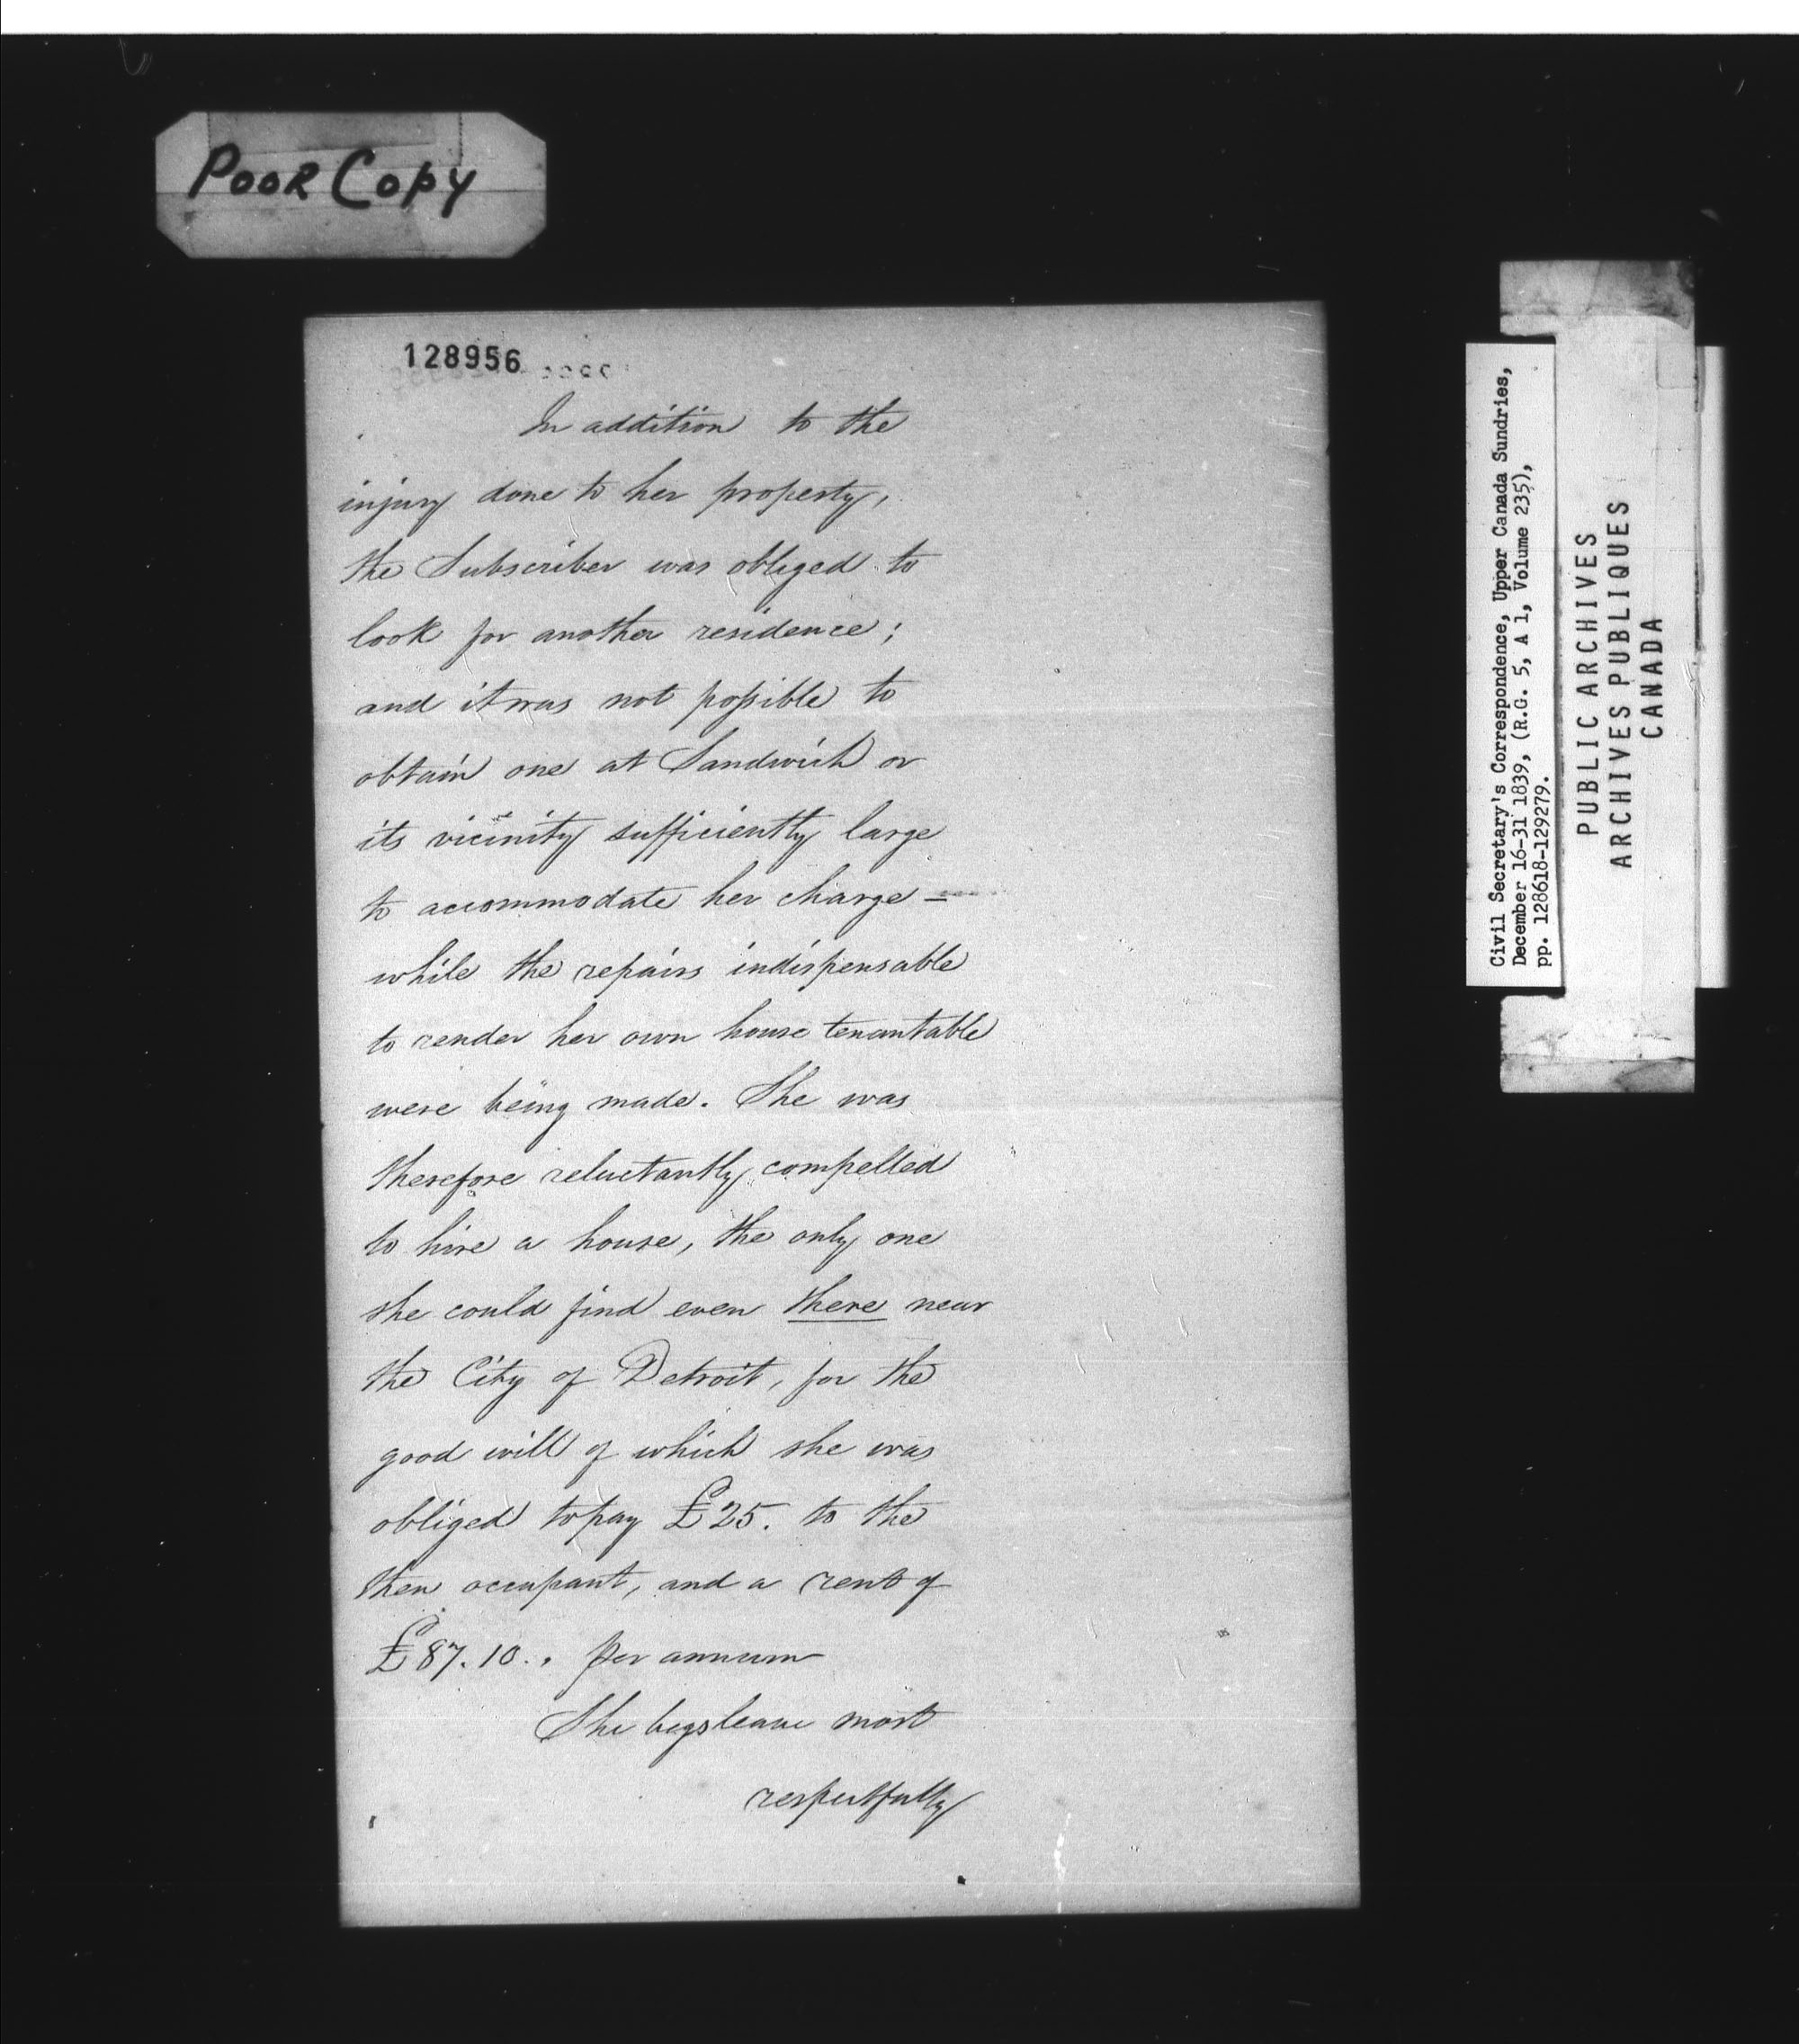 POOR COPY
128956
In addition to the
injury done to her property,
the Subscriber was obliged to
look for another residence;
and it was not possible to
obtain one at Sandwich or
its vicinity sufficiently large
to accommodate her charge —
while the repairs indispensable
to render her own house tenantable
were being made. She was
therefore reluctantly compelled
to hire a house, the only one
she could find even there near
the City of Detroit, for the
good will of which she was
obliged to pay £25. to the
then occupant, and a rent of
£87.10.. per annum
She begs leave most
respectfully
Civil Secretary's Correspondence, Upper Canada Sundries,
December 16-31 1839, (R.G. 5, A 1, Volume 235),
pp. 128618-129279.
PUBLIC ARCHIVES
ARCHIVES PUBLIQUES
CANADA